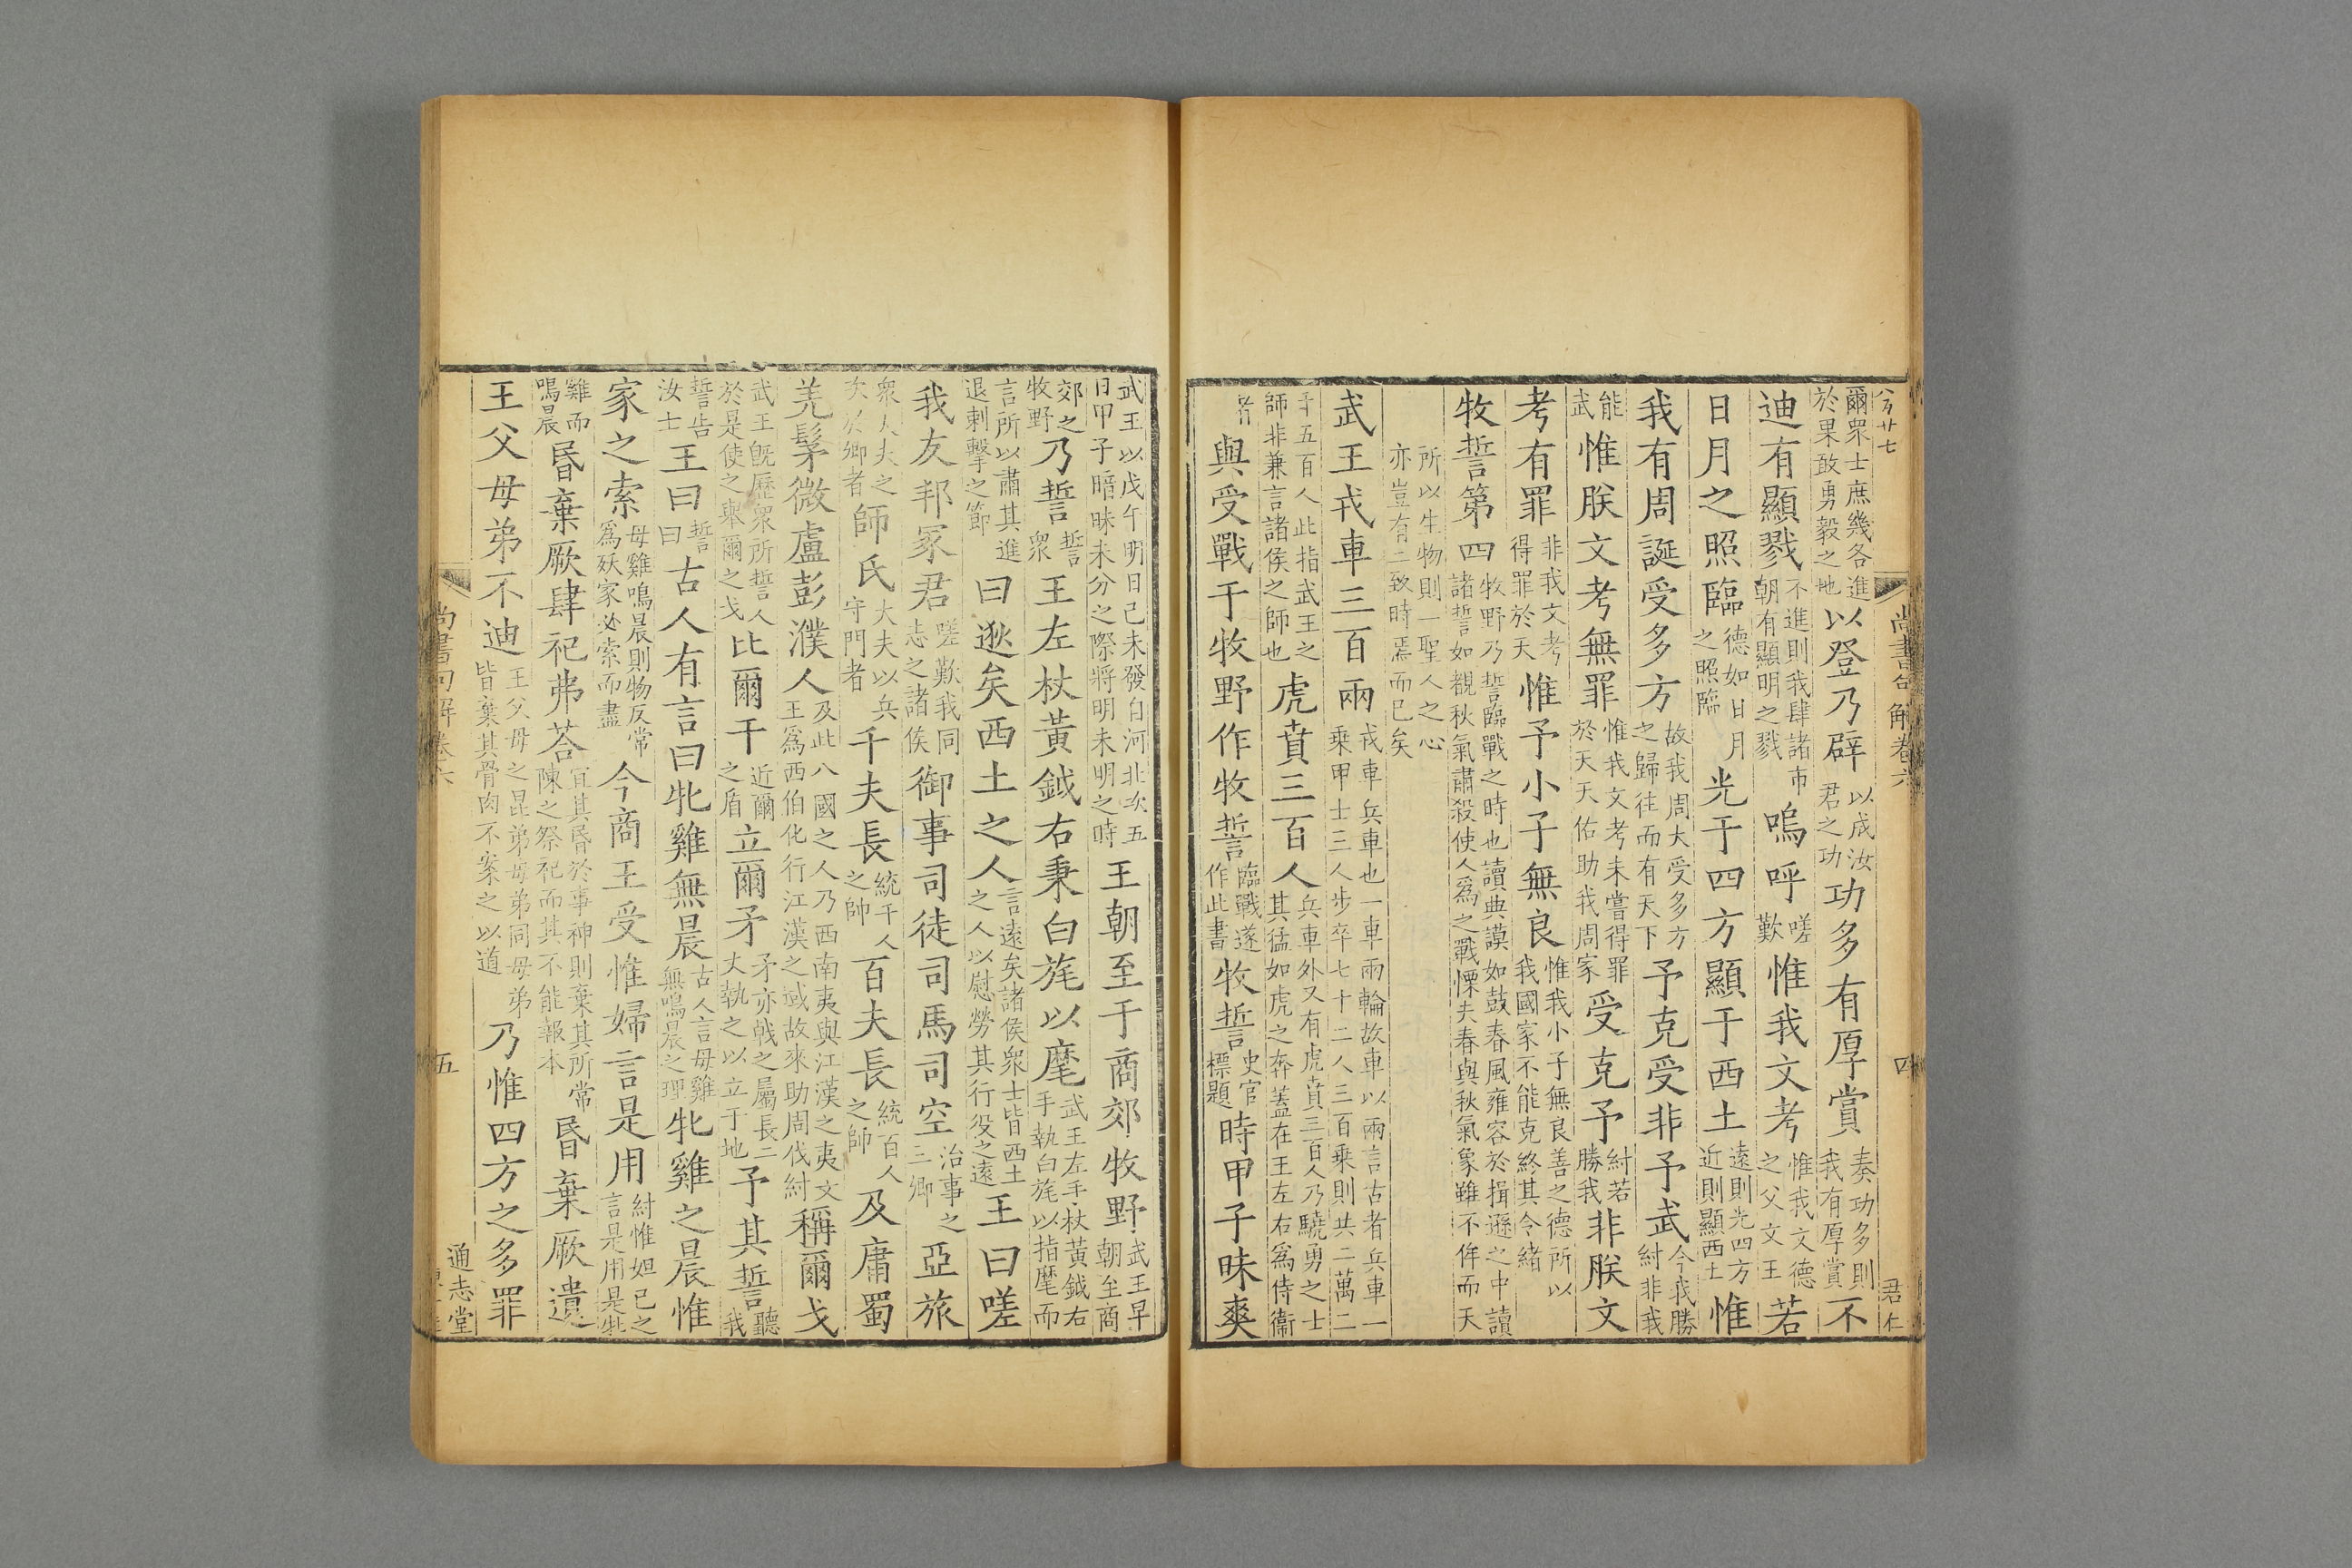 爾衆士庶幾各進於果敢勇毅之地以登乃辟以成汝君之功功多有厚賞奏功多則我有厚賞不
迪有顯戮不進則我肆諸市朝有顯明之戮嗚呼嗟歎惟我文考惟我文德之父文王若
日月之照臨德如日月之照臨光于四方顯于西土遠則光四方近則顯西土惟
我有周誕受多方故我周大受多方之歸往而有天下予克受非予武今我勝紂非我
能武惟朕文考無罪惟我文考未嘗得罪於天天佑助我周家受克予紂若勝我非朕文
考有罪非我文考得罪於天惟予小子無良惟我小子無良善之德所以我國家不能克終其令緒
牧誓第四牧野乃誓臨戰之時也讀典謨如鼓春風雍容於揖遜之中讀諸誓如觀秋氣肅殺使人爲之戰慄夫春與秋氣象雖不侔而天
所以生物則一聖人之心亦豈有二致時焉而已矣
武王戎車三百兩戎車兵車也一車兩輪故車以兩言古者兵車一乘甲士三人步卒七十二人三百乘則共二萬二
千五百人此指武王之師非兼言諸侯之師也虎賁三百人兵車外又有虎賁三百人乃驍勇之士其猛如虎之奔蓋在王左右爲侍衞
者與受戰于牧野作牧誓臨戰遂作此書牧誓史官標題時甲子昧爽
尚書句解卷六
四
君仁
武王以戊午明日己未發自河北次五日甲子暗昧未分之際將明未明之時王朝至于商郊牧野武王早朝至商
郊之牧野乃誓誓衆王左杖黃鉞右秉白旄以麾武王左手杖黃鉞右手執白旄以指麾而
言所以肅其進退刺擊之節曰逖矣西土之人言遠矣諸侯衆士皆西土之人以慰勞其行役之遠王曰嗟
我友邦冢君嗟歎我同志之諸侯御事司徒司馬司空治事之三卿亞旅
衆大夫之次於卿者師氏大夫以兵守門者千夫長統千人之帥百夫長統百人之帥及庸蜀
羌髳微盧彭濮人及此八國之人乃西南夷與江漢之夷文王爲西伯化行江漢之域故來助周伐紂稱爾戈
武王旣歷衆所誓人於是使之舉爾之戈比爾干近爾之盾立爾矛矛亦戟之屬長二丈執之以立于地予其誓聽我
誓告汝士王曰誓曰古人有言曰牝雞無晨古人言母雞無鳴晨之理牝雞之晨惟
家之索母雞鳴晨則物反常爲妖家必索而盡今商王受惟婦言是用紂惟妲己之言是用是牝
雞而鳴晨昬棄厥肆祀弗荅宜其昬於事神則棄其所常陳之祭祀而其不能報本昬棄厥遺
王父母弟不迪王父母之昆弟母弟同母弟皆棄其骨肉不案之以道乃惟四方之多罪
尚書句解卷六
五
通志堂